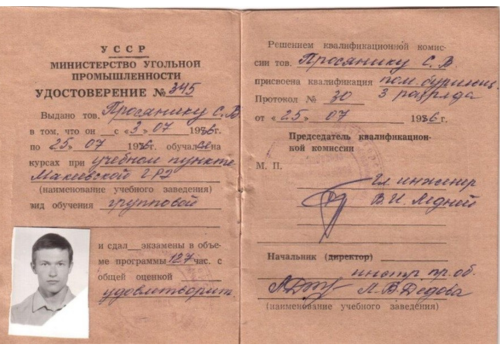 УССР
МИНИСТЕРСТВО УГОЛЬНОЙ
ПРОМЫШЛЕННОСТИ
УДОСТОВЕРЕНИЕ № 345
Выдано тов. Просянику С.В
в том, что он с «3» 07 1976г.
по 25 07 1976г. обучался на
курсах при учебном пункте
Макеевской ГРЭ
(наименование учебного заведения)
вид обучения групповой
и сдал экзамены в объе-
ме программы 127 час. с
общей оценкой
удовлетворит.
Решением квалификационной комис-
сии тов. Просянику С.В
присвоена квалификация пом. бурильщ.
3 разряда
Протокол № 30
от «25» 07 1976г.
Председатель квалификацион-
ной комиссии
М. П.
Гл инженер
В И Медный
Начальник (директор)
инстр пр. об.
Л.В Дедова
(наименование учебного заведения)